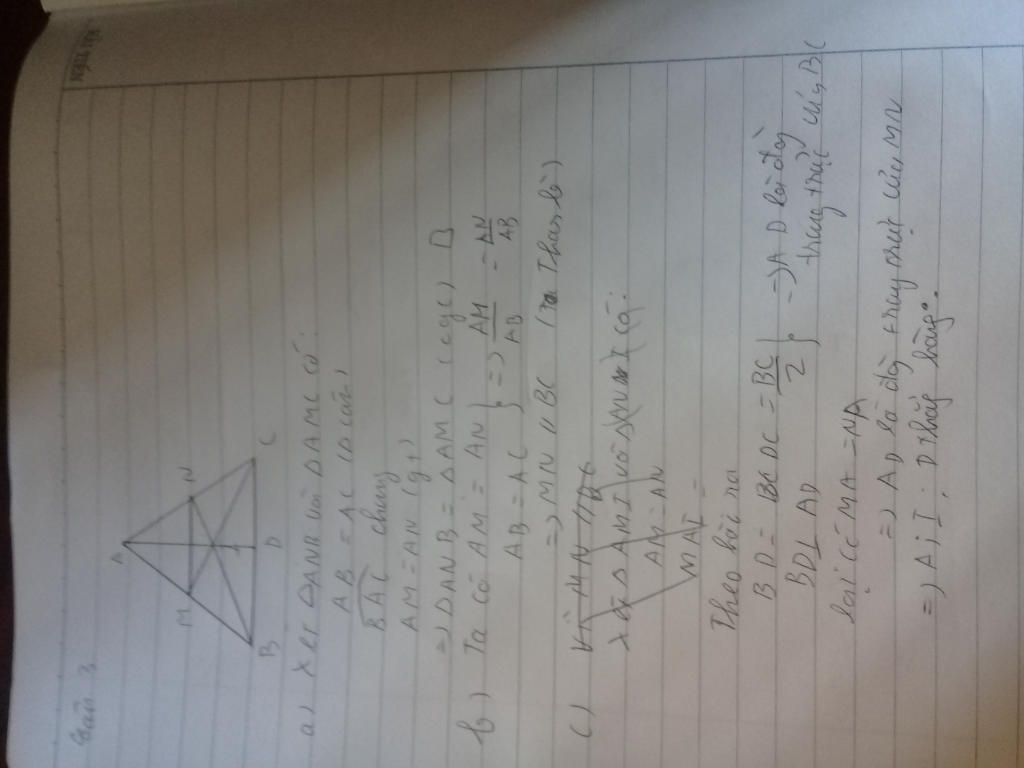 Bài 3
A
M
N
B
D
C
a) Xét ΔANB và ΔAMC có:
AB = AC (Δ cân)
BAC chung
AM = AN (gt)
=> ΔANB = ΔAMC (cgc)
b) Ta có AM = AN } => AM/AB = AN/AB
AB = AC
=> MN // BC (Ta Thales)
c) Vì MN // BC
Xét Δ AMI và ΔANI có:
AM = AN
MAI =
Theo bài ra
BD = DC = BC/2 } => AD là đg
BD ⊥ AD trung trực của BC
Lại có MA = NA
=> AD là đg trung trực của MN
=> A; I; D thẳng hàng.